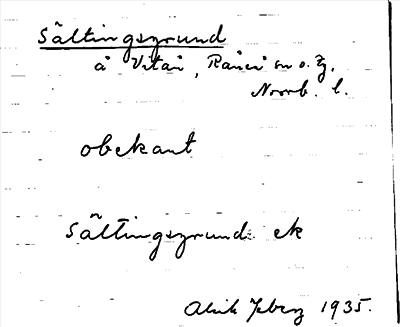 Sältingsgrund
å Vitån, Råneå sn o. tg,
Norrb. l.
obekant
Sältingsgrund: ek
1935.